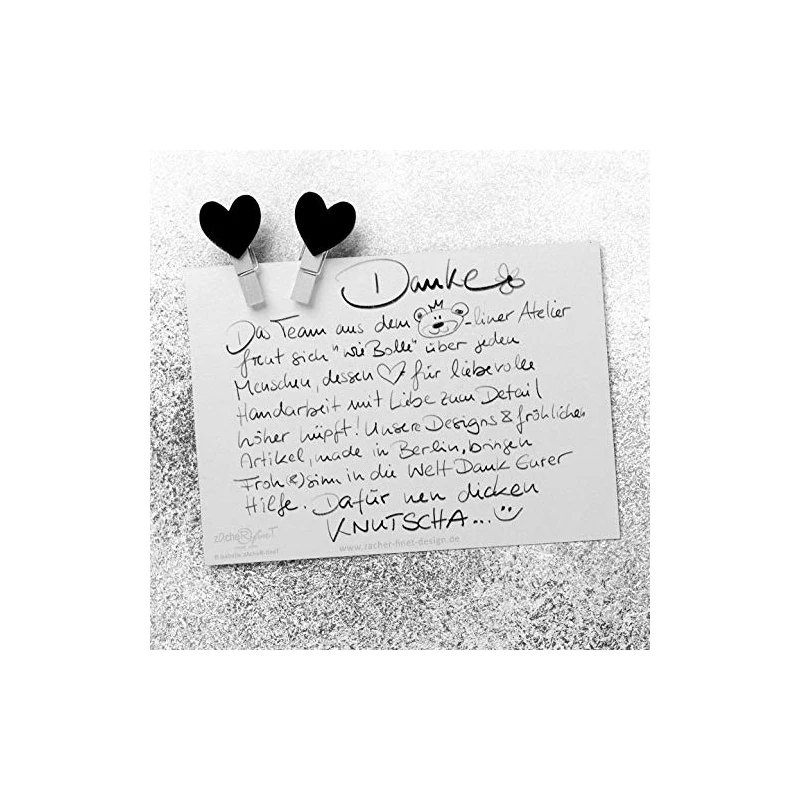 Danke
Das Team aus dem -liner Atelier
freut sich "wie Bolle" über jeden
Menschen, dessen ♡ für liebevolle
Handarbeit mit Liebe zum Detail
höher hüpft! Unsere Designs & fröhlichen
Artikel, made in Berlin, bringen
Froh(e)sinn in die Welt Dank Eurer
Hilfe. Dafür nen dicken
KNUTSCHA...
www.zacher-finet-design.de